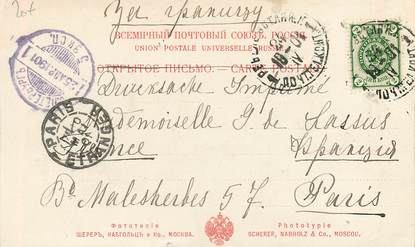 20+
За границу
ВСЕМІРНЫЙ ПОЧТОВЫЙ СОЮЗЪ. РОССІЯ.
UNION POSTALE UNIVERSELLE. RUSSIE.
ОТКРЫТОЕ ПИСЬМО. — CARTE POSTALE.
Drucksache Imprimé
Mademoiselle J. de Lassus
France Франція
Bd Malesherbes 57. Paris
PARIS
ETRANGER
Фототипія
ШЕРЕРЪ, НАБГОЛЬЦЪ и Ко., МОСКВА.
Phototypie
SCHERER, NABHOLZ & Co., MOSCOU.